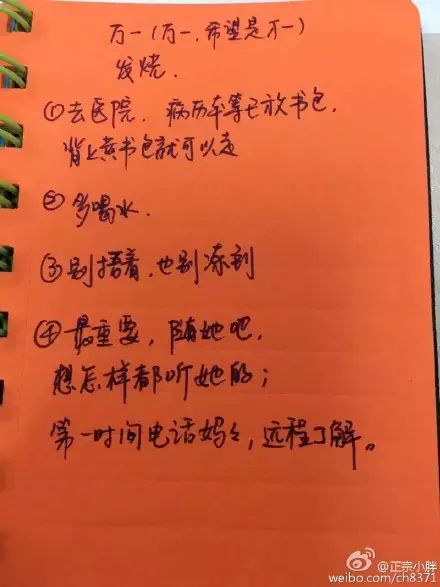 万一(万一,希望是不一)
发烧.
①去医院. 病历本等已放书包.
背上黄书包就可以走
②多喝水.
③别捂着,也别冻到
④最重要,随她吧,
想怎样都听她的;
第一时间电话妈々,远程了解。
@正宗小胖
weibo.com/ch8371